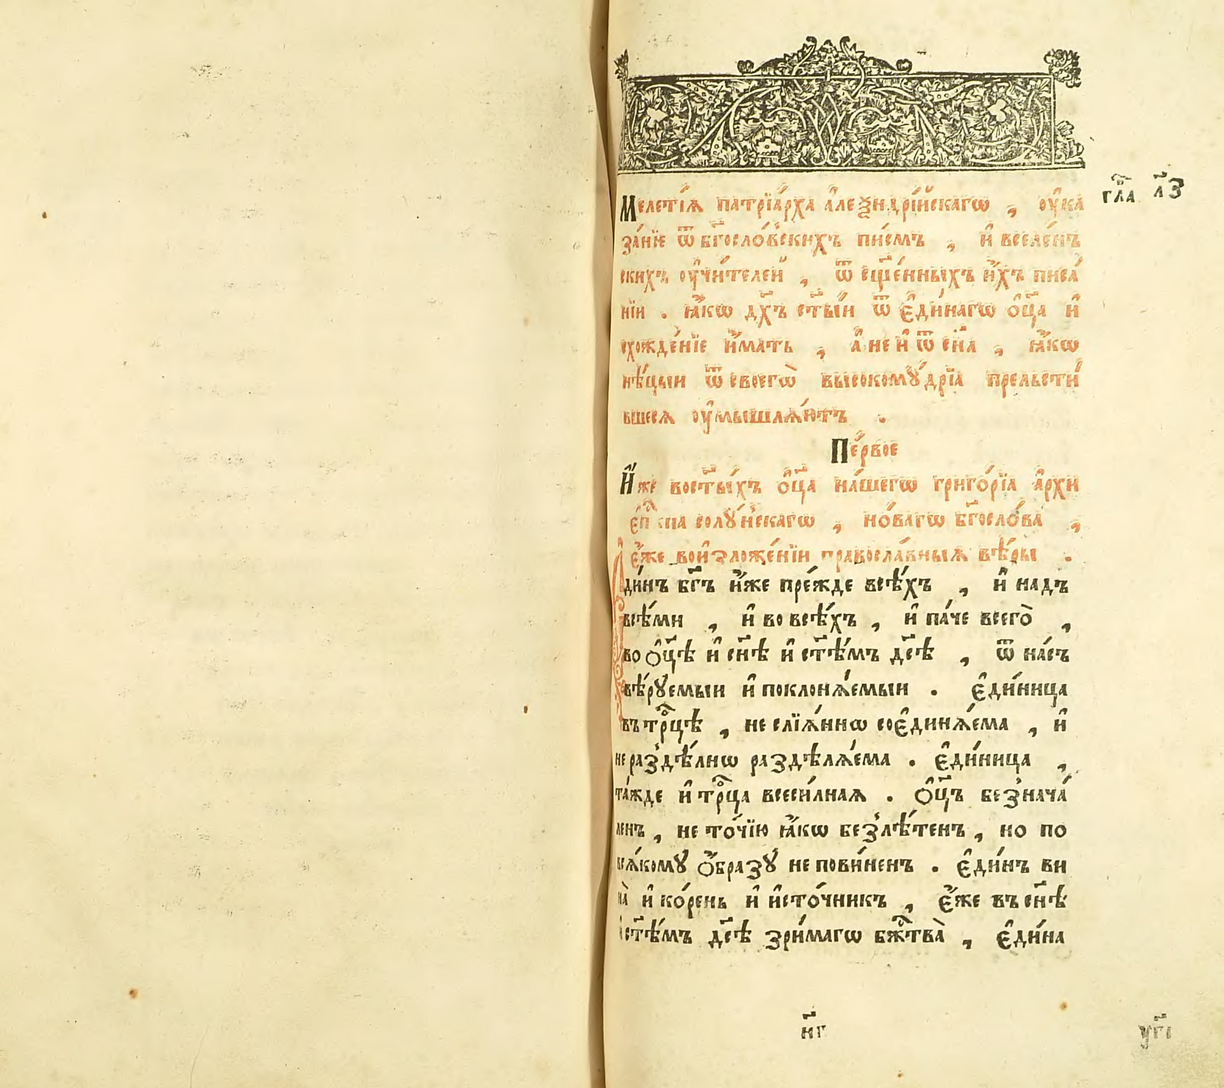 гл҃а л҃з
Меле́тїѧ патрїа́рха а҆леѯандрі́йскагѡ , оу҆ка
за́нїе ѿ бг҃осло́вскихъ писмъ , и҆ вселе́н
скихъ оу҆чи́телей , ѿ сщ҃е́нныхъ и҆́хъ писа́
нїи . ꙗ҆́кѡ дх҃ъ ст҃ы́и ѿ є҆ди́нагѡ ѻ҆ц҃а и҆
схожде́нїе и҆́мать , а҆ не и҆ ѿ сн҃а , ꙗ҆́кѡ
нѣ́цыи ѿ своегѡ̀ высокомꙋ́дрїа прельсти́
вшесѧ оу҆мышлѧ́ютъ .
Пе́рвое
И҆́же во ст҃ы́хъ ѻ҆ц҃а на́шегѡ григо́рїа а҆рхи
є҆пⷭ҇кпа солꙋ́нскагѡ , но́вагѡ бг҃осло́ва ,
є҆́же во и҆зложе́нїи правосла́вныѧ вѣ́ры .
Е҆ди́нъ бг҃ъ и҆́же пре́жде всѣ́хъ , и҆ надъ
всѣ́ми , и҆ во всѣ́хъ , и҆ па́че всего̀ ,
во ѻ҆ц҃ѣ и҆ сн҃ѣ и҆ ст҃ѣ́мъ дс҃ѣ , ѿ на́съ
вѣ́рꙋемыи и҆ поклонѧ́емыи . є҆ди́ница
въ трⷪ҇цѣ , не слїѧ́ннѡ соє҆динѧ́ема , и҆
не раздѣ́лнѡ раздѣлѧ́ема . є҆ди́ница ,
та́жде и҆ трⷪ҇ца всеси́лная . ѻ҆ц҃ъ безнача́
ленъ , не то́чїю ꙗ҆́кѡ безлѣ́тенъ , но по
всѧ́комꙋ ѻ҆́бразꙋ не пови́ненъ . є҆ди́нъ ви
на̀ и҆ ко́рень и҆ и҆сто́чникъ , є҆́же въ сн҃ѣ
и҆ ст҃ѣ́мъ дс҃ѣ зри́магѡ бжⷭ҇твà , є҆ди́на
н҃г